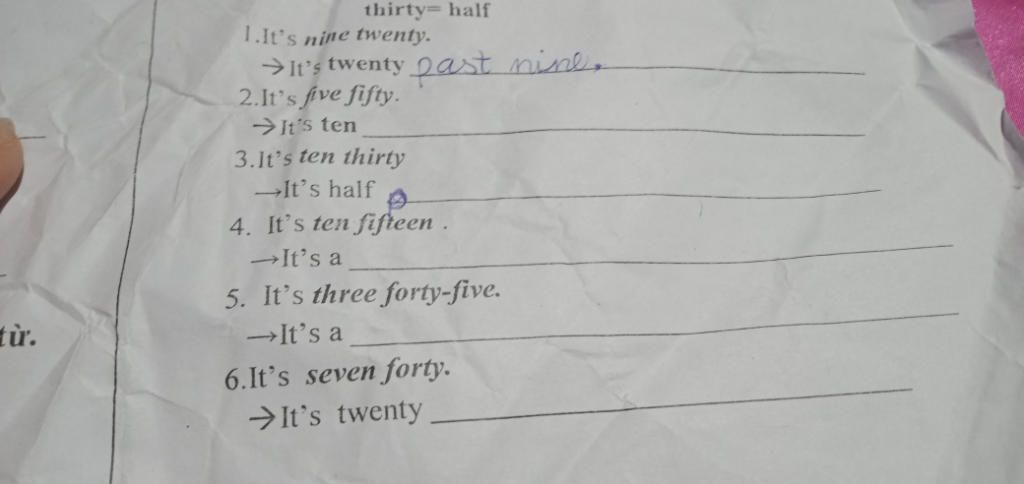 thirty= half
1.It's nine twenty.
→It's twenty past nine.
2.It's five fifty.
→It's ten
3.It's ten thirty
→It's half
4. It's ten fifteen .
→It's a
5. It's three forty-five.
→It's a
từ.
6.It's seven forty.
→It's twenty